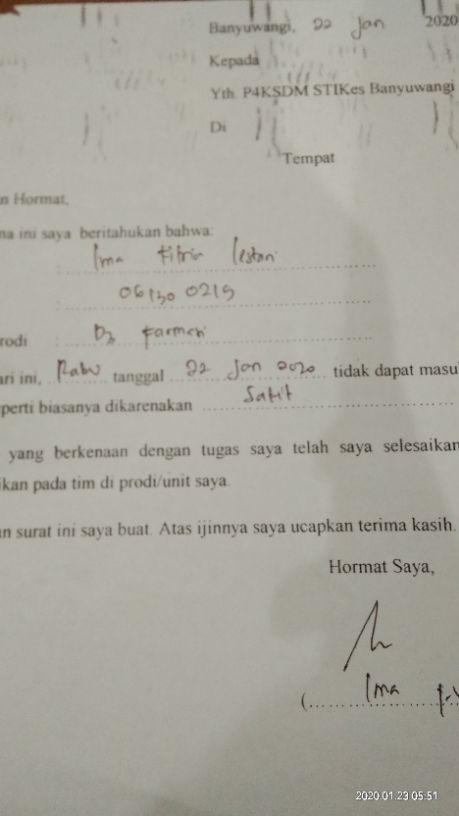 Banyuwangi, 22 Jan 2020
Kepada
Yth. P4KSDM STIKes Banyuwangi
Di
Tempat
n Hormat,
na ini saya beritahukan bahwa:
: Ima Fitria Lestari
: 06130 0219
rodi : D3 Farmasi
ari ini, Rabu tanggal 22 Jan 2020 tidak dapat masu
perti biasanya dikarenakan Sakit
yang berkenaan dengan tugas saya telah saya selesaikan
ikan pada tim di prodi/unit saya.
an surat ini saya buat. Atas ijinnya saya ucapkan terima kasih.
Hormat Saya,
(Ima
2020.01.23 05:51